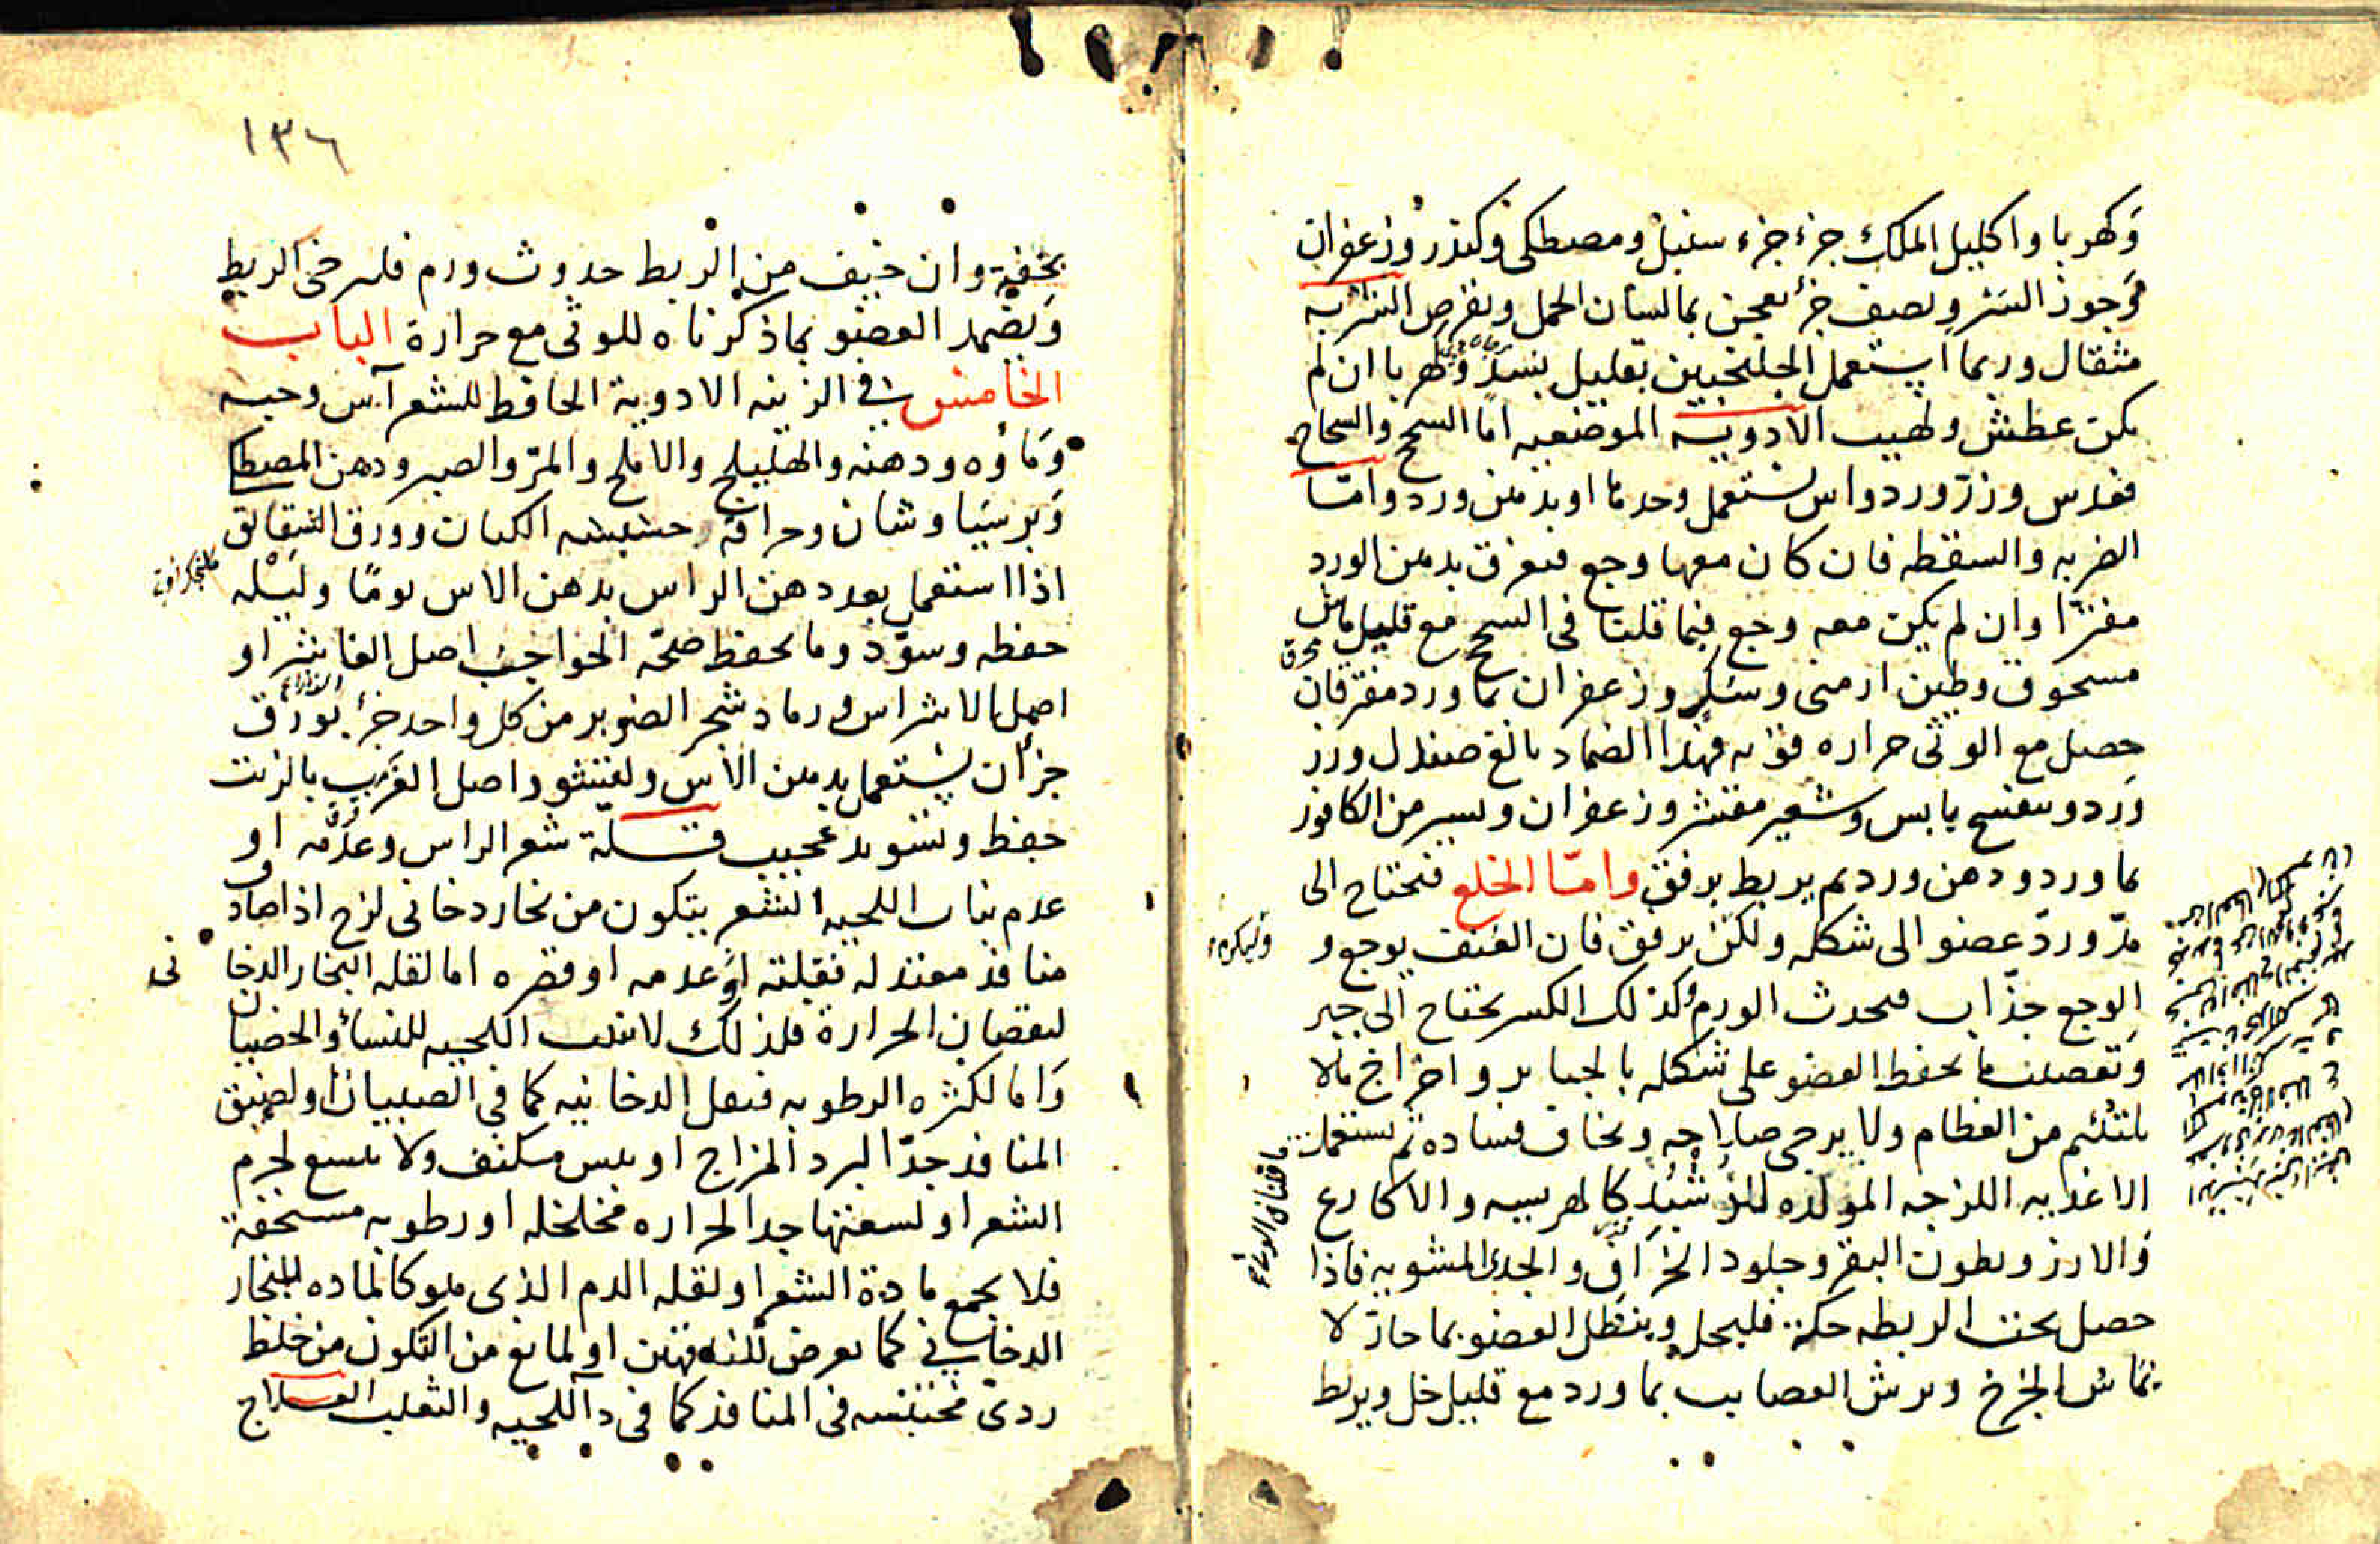 وكهربا واكليل الملك جزء جزء سنبل ومصطكى وكندر وزعفران
وجوز السرو نصف جزء يعجن بما لسان الحمل ويقرص الشربه
مثقال وربما استعمل الجلنجبين بقليل بسد وكهربا ان لم
يكن عطش ولهيب الادوية الموضعيه اما السحج والسحاج
فعدس وزر ورد واس تستعمل وحدها او بدهن ورد واما
الضربه والسقطه فان كان معها وجع فتعرق بدهن الورد
مفترا وان لم يكن معه وجع فيما قلنا فى السحج مع قليل ماش
مسحوق وطين ارمنى وسكر وزعفران بما ورد مفتر فان
حصل مع الوثى حراره قويه فهذا الضماد بالغ صندل وزر
ورد وبنفسج يابس وشعير مقشر وزعفران ويسير من الكافور
بما ورد ودهن ورد ثم يربط برفق واما الخلع فتحتاج الى
مد ورد عضو الى شكله ولكن برفق فان العنف يوجع و
وليكن
الوجع جذاب فيحدث الورم وكذلك الكسر يحتاج الى جبر
وتفصلت ما يحفظ العضو على شكله بالجباير واخراج مالا
يلتئم من العظام ولا يرجى صلاحه ويخاف فساده ثم يستعمل
ما قلنا فى الوثى
الاغذيه اللزجه المولده للدشبد كالهريسه والاكارع
والارز وبطون البقر وجلود الخراف والجدى المشويه فاذا
حصل تحت الربطه حكة فليحل وينطل العضو بما حار لا
يماس الجرح ويرش العصايب بما ورد مع قليل خل ويربط
١٣٦
بخفية وان خيف من الربط حدوث ورم فليرخى الربط
ويضمد العضو بما ذكرناه للوثى مع حرارة الباب
الخامس فى الزينه الادوية الحافظ للشعر آس وحبه
وماؤه ودهنه والهليلج والاملج والمر والصبر ودهن المصطكا
وبرسياوشان وحراقة حشيشه الكتان وورق الشقائق
اذا استعمل بعد دهن الراس بدهن الاس يوما وليله
حفظه وسود وما يحفظ صحه الحواجب اصل الفاشرا و
اصل الاشراس ورماد شجر الصنوبر من كل واحد جزء بورق
جزأن يستعمل بدهن الاس ولقشور اصل الغرب بالزيت
حفظ وتسويد عجيب قسلة شعر الراس وعدمه او
عدم نبات اللحيه الشعر يتكون من بخار دخانى لزج اذا صادف
منافذ معتدله فقلته او عدمه او قصره اما لقله البخار الدخا نى
لنقصان الحرارة فلذلك لا تنبت اللحيه للنساء والخصيان
واما لكثره الرطوبه فتقل الدخانيه كما فى الصبيان او لضيق
المنافذ جدا لبرد المزاج او يبس مكثف ولا يتسع لجرم
الشعر او لسعتها جدا لحراره مخلخله او رطوبه مسخفة
فلا يجمع مادة الشعر او لقله الدم الذى هو كالماده للبخار
الدخانى كما يعرض للناقهين او لمانع من التكون من خلط
ردى محتبسه فى المنافذ كما فى دآ اللحيه والثعلب العلاج